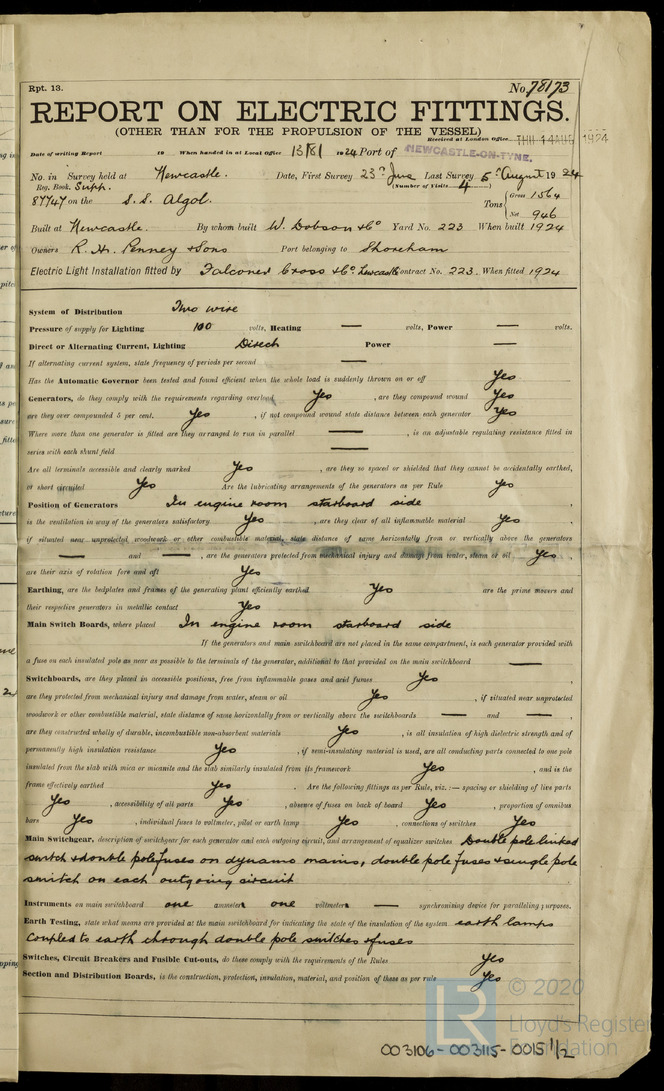 Rpt. 13. No. 78173
REPORT ON ELECTRIC FITTINGS.
(OTHER THAN FOR THE PROPULSION OF THE VESSEL)
Received at London Office THU 14 AUG 1924
Date of writing Report 19 When handed in at Local Office 13/8/ 1924 Port of NEWCASTLE-ON-TYNE.
No. in Survey held at Newcastle. Date, First Survey 23rd June Last Survey 5th August 1924
Reg. Book. Supp. (Number of Visits 4)
87747 on the S.S. Algol. Tons { Gross 1564
Net 946
Built at Newcastle. By whom built W. Dobson & Co Yard No. 223 When built 1924
Owners R. H. Penney & Sons Port belonging to Shoreham
Electric Light Installation fitted by Falconer Cross & Co. Newcastle Contract No. 223. When fitted 1924
System of Distribution Two wire
Pressure of supply for Lighting 100 volts, Heating — volts, Power — volts.
Direct or Alternating Current, Lighting Direct Power —
If alternating current system, state frequency of periods per second —
Has the Automatic Governor been tested and found efficient when the whole load is suddenly thrown on or off Yes
Generators, do they comply with the requirements regarding overload Yes, are they compound wound Yes
are they over compounded 5 per cent. Yes, if not compound wound state distance between each generator Yes
Where more than one generator is fitted are they arranged to run in parallel —, is an adjustable regulating resistance fitted in
series with each shunt field —
Are all terminals accessible and clearly marked Yes, are they so spaced or shielded that they cannot be accidentally earthed,
or short circuited Yes Are the lubricating arrangements of the generators as per Rule Yes
Position of Generators In engine room starboard side,
is the ventilation in way of the generators satisfactory Yes, are they clear of all inflammable material Yes,
if situated near unprotected woodwork or other combustible material, state distance of same horizontally from or vertically above the generators
— and —, are the generators protected from mechanical injury and damage from water, steam or oil Yes,
are their axis of rotation fore and aft Yes
Earthing, are the bedplates and frames of the generating plant efficiently earthed Yes are the prime movers and
their respective generators in metallic contact Yes
Main Switch Boards, where placed In engine room starboard side
If the generators and main switchboard are not placed in the same compartment, is each generator provided with
a fuse on each insulated pole as near as possible to the terminals of the generator, additional to that provided on the main switchboard —
Switchboards, are they placed in accessible positions, free from inflammable gases and acid fumes Yes,
are they protected from mechanical injury and damage from water, steam or oil Yes, if situated near unprotected
woodwork or other combustible material, state distance of same horizontally from or vertically above the switchboards — and —,
are they constructed wholly of durable, incombustible non-absorbent materials Yes, is all insulation of high dielectric strength and of
permanently high insulation resistance Yes, if semi-insulating material is used, are all conducting parts connected to one pole
insulated from the slab with mica or micanite and the slab similarly insulated from its framework Yes, and is the
frame effectively earthed Yes. Are the following fittings as per Rule, viz.:— spacing or shielding of live parts
Yes, accessibility of all parts Yes, absence of fuses on back of board Yes, proportion of omnibus
bars Yes, individual fuses to voltmeter, pilot or earth lamp Yes, connections of switches Yes
Main Switchgear, description of switchgear for each generator and each outgoing circuit, and arrangement of equalizer switches Double pole linked
switch & double pole fuses on dynamo mains, double pole fuses & single pole
switch on each outgoing circuit
Instruments on main switchboard one ammeter one voltmeter — synchronizing device for paralleling purposes.
Earth Testing, state what means are provided at the main switchboard for indicating the state of the insulation of the system earth lamps
coupled to earth through double pole switches & fuses
Switches, Circuit Breakers and Fusible Cut-outs, do these comply with the requirements of the Rules Yes
Section and Distribution Boards, is the construction, protection, insulation, material, and position of these as per rule Yes
© 2020
LR Lloyd's Register
Foundation
003106-003115-0015 1/2